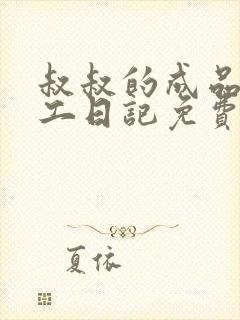 叔叔的成品
工日記免費
夏依